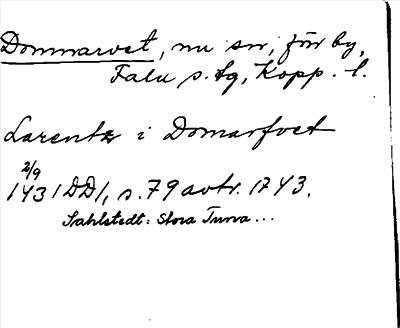 Dommarvet, nu sn, förr by,
Falu s. tg, Kopp. l.
Larentz i Domarfvet
2/9
1431 DD1, s. 79 avtr. 1743.
Sahlstedt: Stora Tuna...